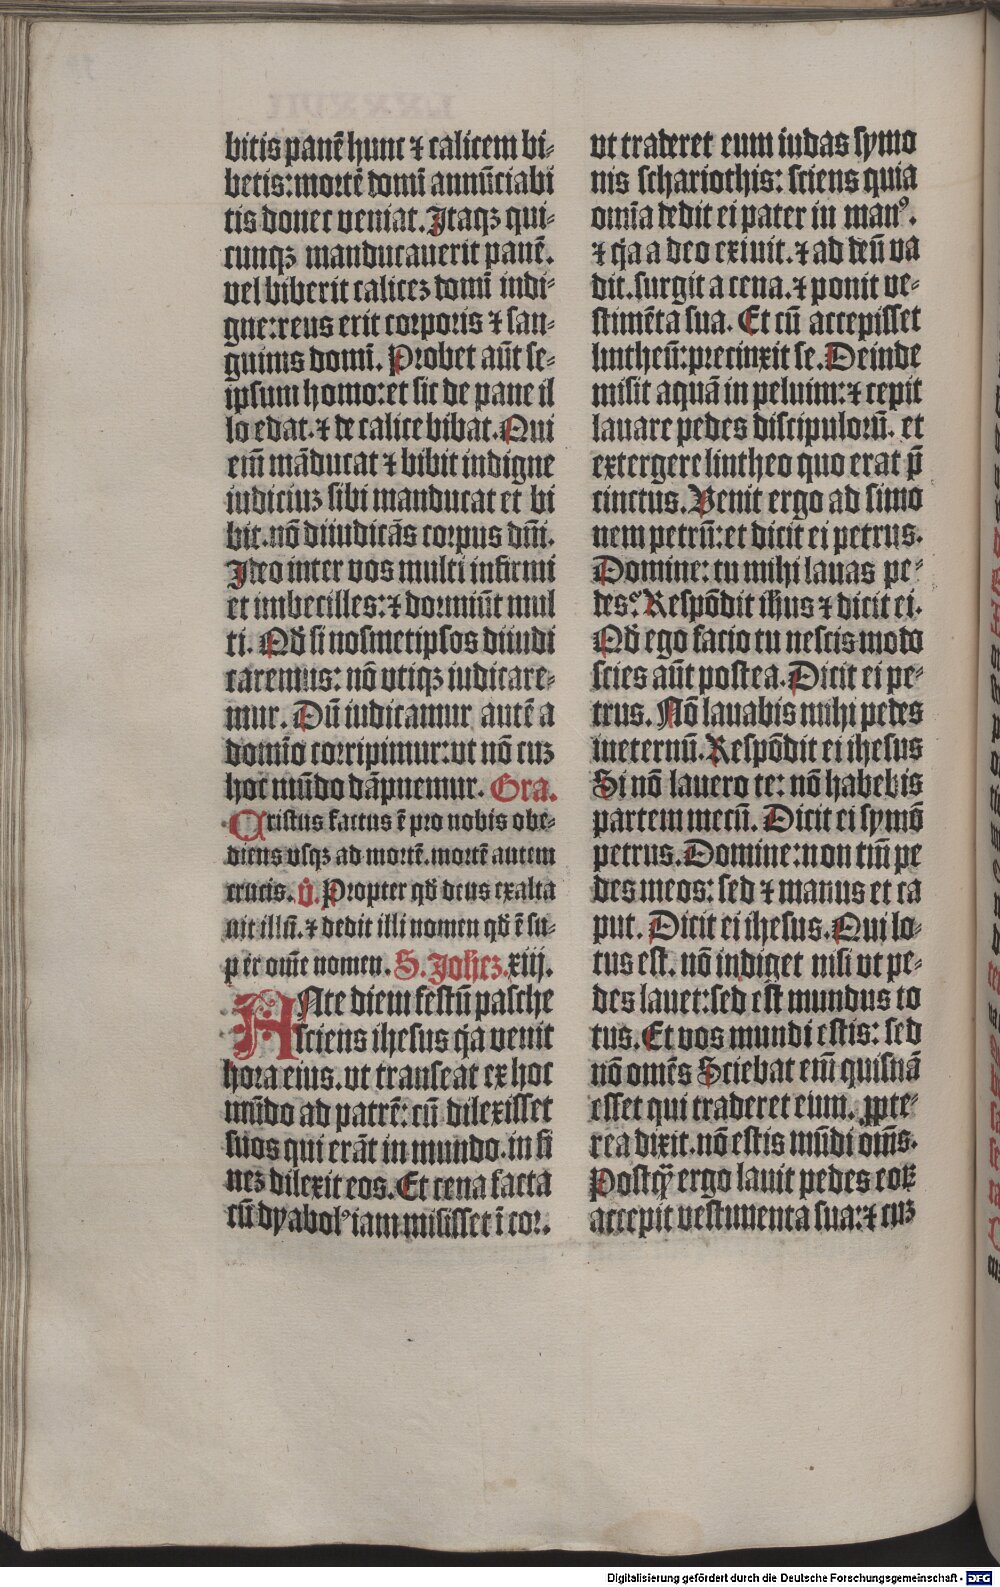 bitis panē hunc ⁊ calicem bi⸗
betis: mortē domī annūciabi
tis donec veniat. Itaqꝫ qui⸗
cunqꝫ manducauerit panē.
vel biberit caliceꝫ domī indi⸗
gne: reus erit corporis ⁊ san⸗
guinis domī. Probet aūt se⸗
ipsum homo: et sic de pane il
lo edat. ⁊ de calice bibat. Qui
eīm māducat ⁊ bibit indigne
iudiciuꝫ sibi manducat et bi
bit. nō diiudicās corpus dn̄i.
Ideo inter vos multi infirmi
et imbecilles: ⁊ dormiūt mul
ti. Qd̄ si nosmetipsos diiudi
caremus: nō vtiqꝫ iudicare⸗
mur. Dū iudicamur autē a
domīo corripimur: vt nō cuꝫ
hoc mūdo dāpnemur. Gra.
Cristus factus ē pro nobis obe⸗
diens vsqꝫ ad mortē. mortē autem
crucis. v̊. Propter qd̄ deus exalta
uit illū. ⁊ dedit illi nomen qd̄ ē su⸗
per om̄e nomen. S. Joheꝫ. xiij.
ANte diem festū pasche
sciens ihesus q̇a venit
hora eius. vt transeat ex hoc
mūdo ad patrē: cū dilexisset
suos qui erāt in mundo. in fi
neꝫ dilexit eos. Et cena facta
cū dyabolꝰ iam misisset ī cor.
vt traderet eum iudas symo
nis schariothis: sciens quia
omīa dedit ei pater in manꝰ.
⁊ q̇a a deo exiuit. ⁊ ad deū va
dit. surgit a cena. ⁊ ponit ve⸗
stimēta sua. Et cū accepisset
lintheū: precinxit se. Deinde
misit aquā in peluim: ⁊ cepit
lauare pedes discipulorū. et
extergere lintheo quo erat p̄
cinctus. Venit ergo ad simo
nem petrū: et dicit ei petrus.
Domine: tu mihi lauas pe⸗
des? Respōdit ih̄us ⁊ dicit ei.
Qd̄ ego facio tu nescis modo
scies aūt postea. Dicit ei pe⸗
trus. Nō lauabis mihi pedes
ineternū. Respōdit ei ihesus
Si nō lauero te: nō habebis
partem mecū. Dicit ei symō
petrus. Domine: non tm̄ pe
des meos: sed ⁊ manus et ca
put. Dicit ei ihesus. Qui lo⸗
tus est. nō indiget nisi vt pe⸗
des lauet: sed est mundus to
tus. Et vos mundi estis: sed
nō omēs Sciebat eīm quisnā
esset qui traderet eum. ꝓpte⸗
rea dixit. nō estis mūdi om̄s.
Postꝙ̄ ergo lauit pedes eoꝝ
accepit vestimenta sua: ⁊ cuꝫ
Digitalisierung gefördert durch die Deutsche Forschungsgemeinschaft - DFG